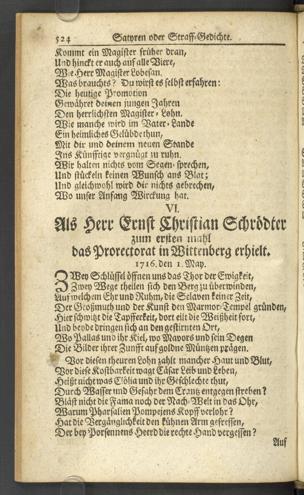 524 Satyren oder Straff-Gedichte.
Kommt ein Magister früher dran,
Und hinckt er auch auf alle Viere,
Wie Herr Magister Lobesan.
Was brauchts? Du wirst es selbst erfahren:
Die heutige Promotion
Gewähret deinen jungen Jahren
Den herrlichsten Magister-Lohn.
Wie manche wird im Vater-Lande
Ein heimliches Gelübde thun,
Mit dir und deinem neuen Stande
Ins Künfftige vergnügt zu ruhn.
Wir halten nichts vom Segen-sprechen,
Und stückeln keinen Wunsch aus Blat;
Und gleichwohl wird dir nichts gebrechen,
Wo unser Anfang Würckung hat.
VI.
Als Herr Ernst Christian Schrödter
zum ersten mahl
das Prorectorat in Wittenberg erhielt.
1716. den 1. May.
ZWey Schlüssel öffnen uns das Thor der Ewigkeit,
Zwey Wege theilen sich den Berg zu überwinden,
Auf welchem Ehr und Ruhm, die Sclaven keiner Zeit,
Der Großmuth und der Kunst den Marmor-Tempel gründen,
Hier schwitzt die Tapfferkeit, dort eilt die Weißheit fort,
Und beyde dringen sich an den gestirnten Ort,
Wo Pallas und ihr Kiel, wo Mavors und sein Degen
Die Bilder ihrer Zunfft auf goldne Müntzen prägen.
Vor diesen theuren Lohn zahlt mancher Haut und Blut,
Vor diese Kostbarkeit wagt Cäsar Leib und Leben,
Heißt nicht was Clölia und ihr Geschlechte thut,
Durch Wasser und Gefahr dem Crantz entgegen streben?
Bläst nicht die Fama noch der Nach-Welt in das Ohr,
Warum Pharsalien Pompejens Kopff verlohr?
Hat die Vergänglichkeit den kühnen Arm gefressen,
Der bey Porsennens Heerd die rechte Hand vergessen?
Auf